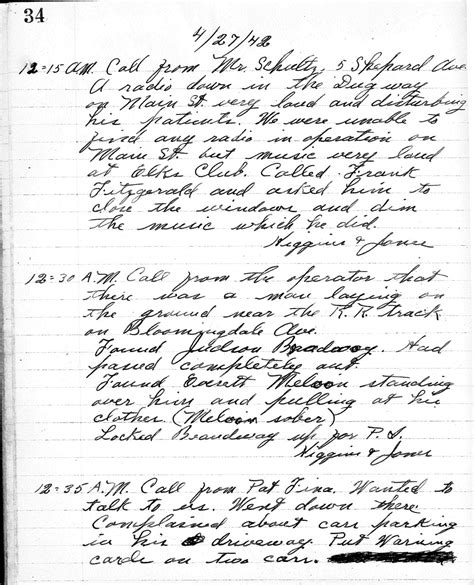 34
4/27/42
12=15 A.M. Call from Mr. Schultz, 5 Shepard Ave.
A radio down in the Dugway
on Main St. very loud and disturbing
his patients. We were unable to
find any radio in operation on
Main St. but music very loud
at Elks Club. Called Frank
Fitzgerald and asked him to
close the windows and dim
the music which he did.
Higgins & Jones
12=30 A.M. Call from the operator that
there was a man laying on
the ground near the R.R. track
on Bloomingdale Ave.
Found Judson Broadway. Had
passed completely out.
Found Everett Meloon standing
over him and pulling at his
clothes. (Meloon sober)
Locked Broadway up for P. I.
Higgins & Jones
12=35 A.M. Call from Pat Fina. Wanted to
talk to us. Went down there
Complained about cars parking
in his driveway. Put Warning
cards on two cars.